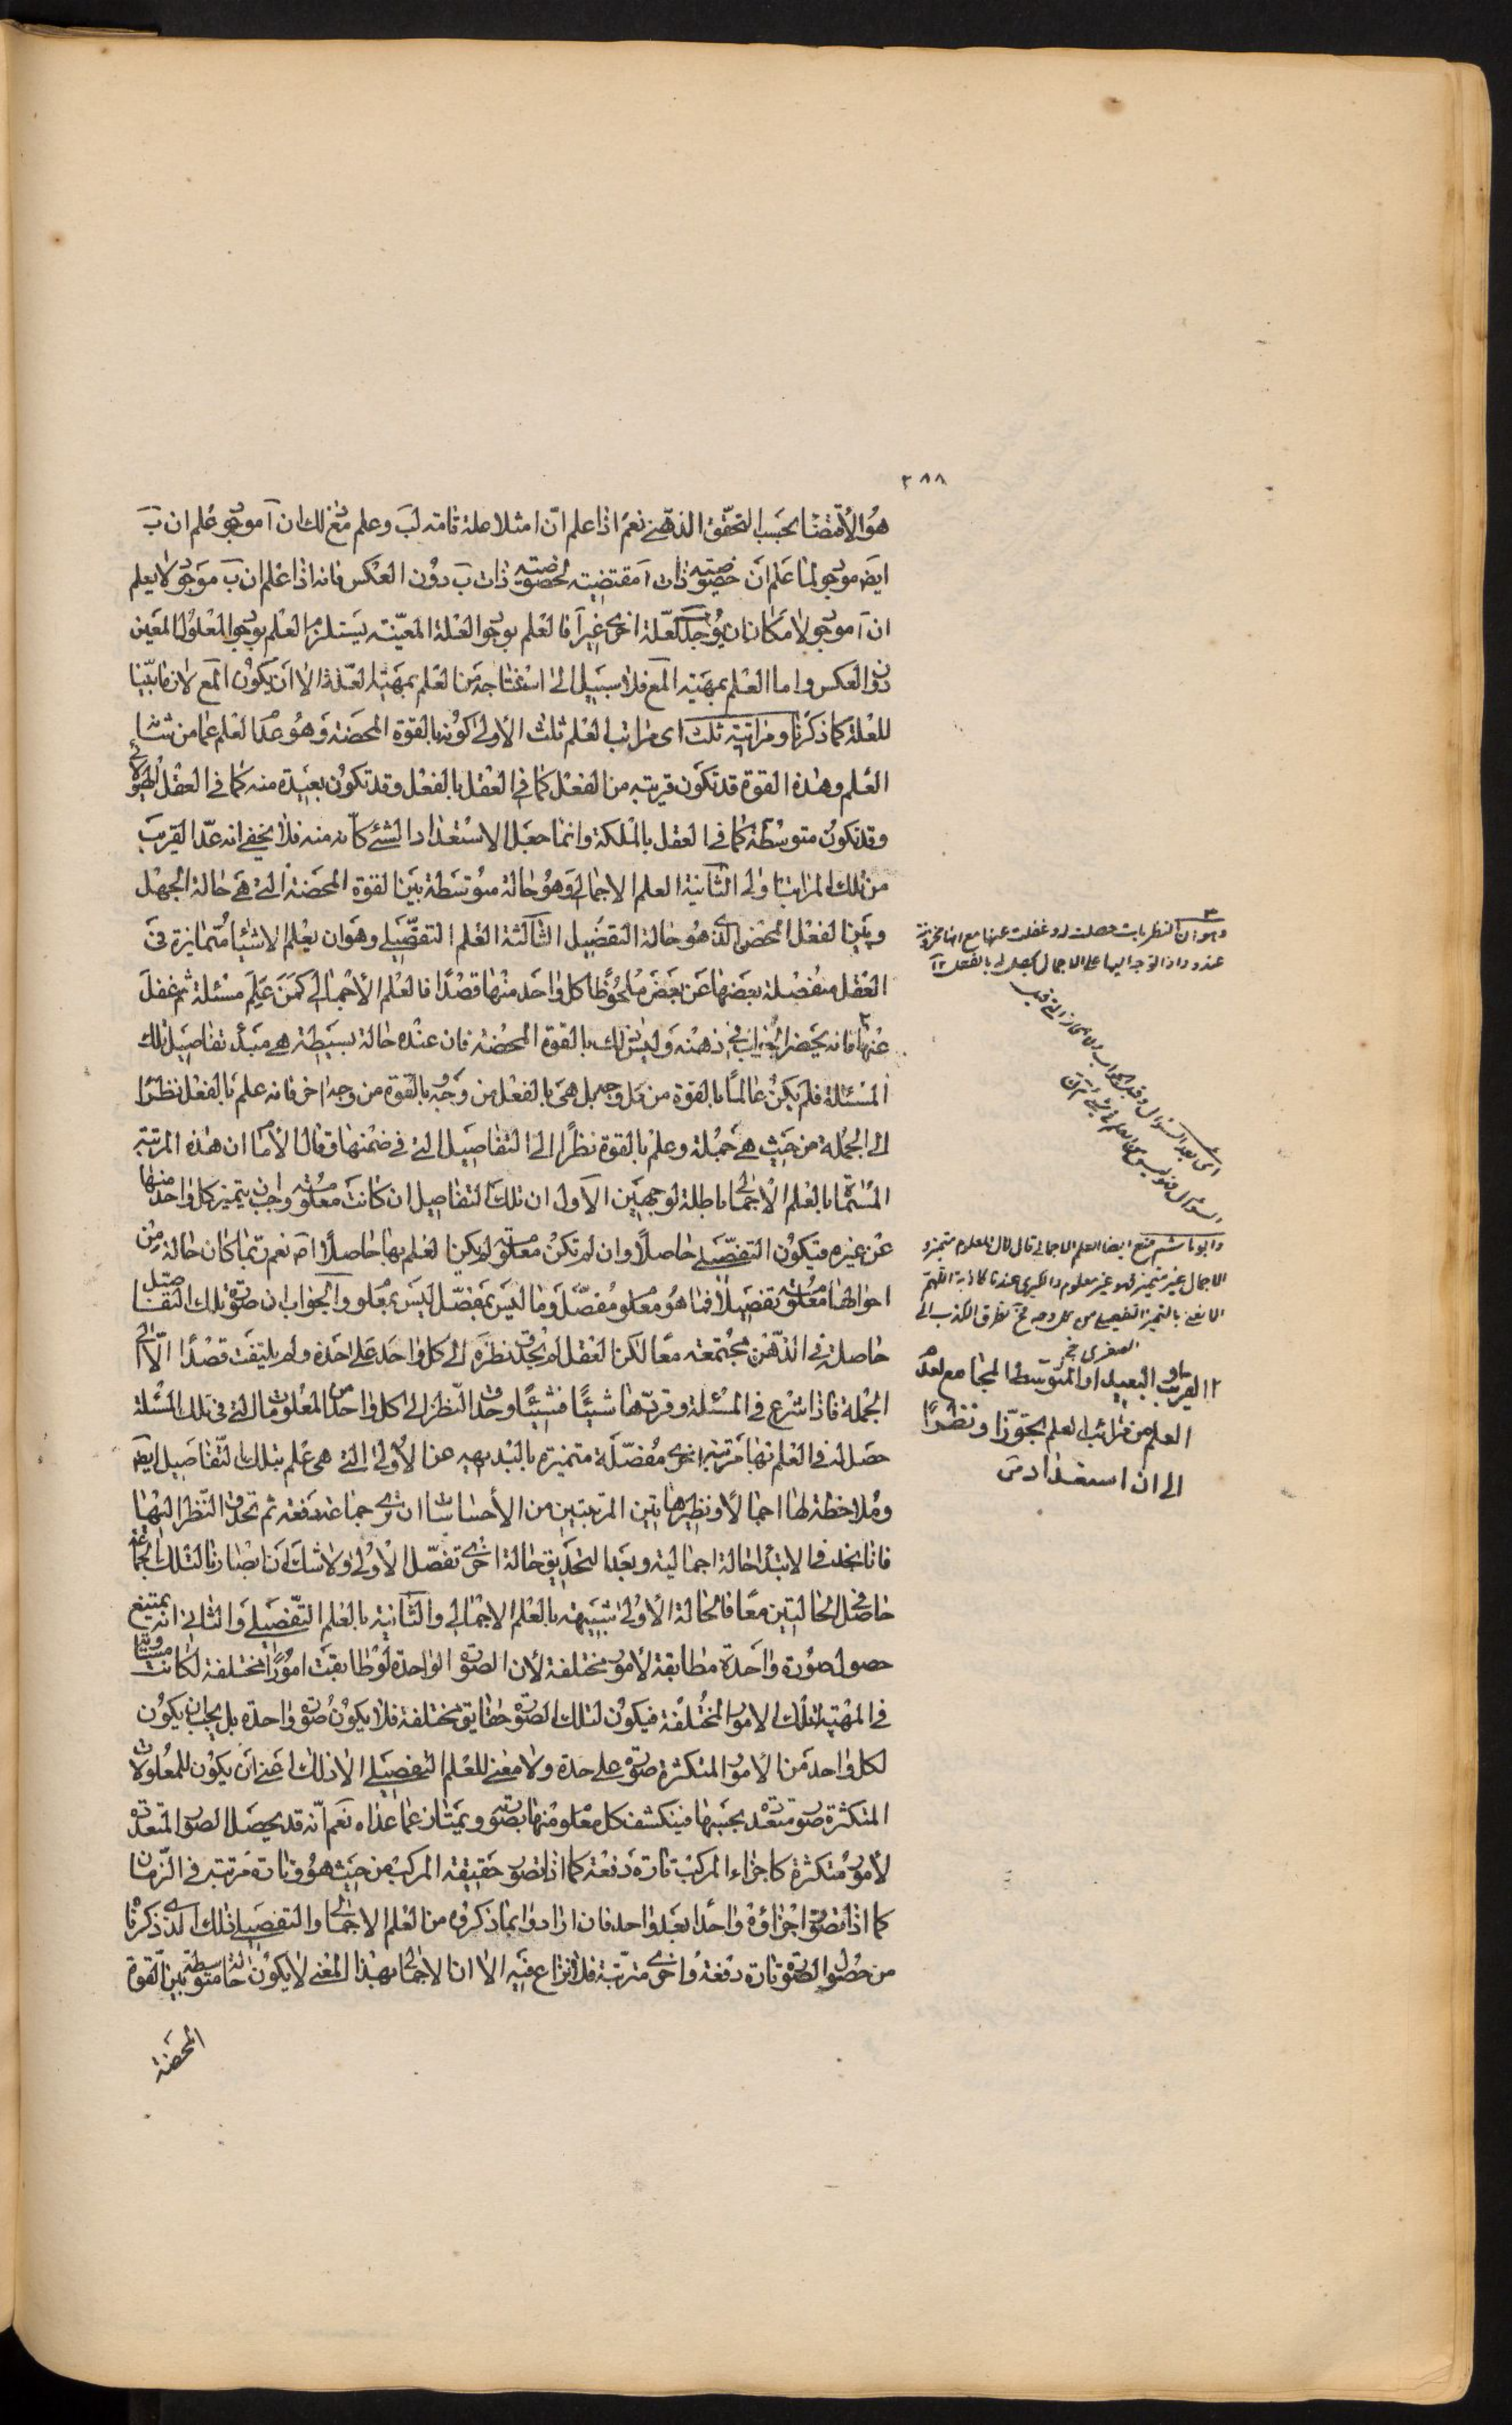 ٢٨٨
هو الاقتضا بحسب التحقق الذهني نعم اذا علم ان آ مثلا علة تامة لب وعلم مع ذلك ان آ موجود علم ان ب
ايضا موجود لما علم ان خصوصية ذات آ مقتضية لخصوصية ذات ب دون العكس فانه اذا علم ان ب موجود لا يعلم
ان آ موجود لامكان ان يوجد ب لعلة اخرى غير آ فالعلم بوجود العلة المعينة يستلزم العلم بوجود المعلول المعين
دون العكس واما العلم بمهية المع فلا سبيل الى استنتاجه من العلم بمهية العلة الا ان يكون المع لازما بينا
للعلة كما ذكرنا ومراتبه ثلث اى مراتب العلم ثلث الاولى كونه بالقوة المحضة وهو عدم العلم عما من شانه
العلم وهذه القوة قد تكون قريبة من الفعل كما في العقل بالفعل وقد تكون بعيدة منه كما في العقل الهيولاني
وقد تكون متوسطة كما في العقل بالملكة وانما جعل الاستعداد الشئ كانه منه فلا يخفى انه عد القريب
من تلك المراتب اولى الثانية العلم الاجمالي وهو حالة متوسطة بين القوة المحضة التي هي حالة الجهل
وبين الفعل المحض الذي هو حالة التفصيل الثالثة العلم التفصيلي وهو ان يعلم الاشيا متمايزة في
العقل منفصلة بعضها عن بعض ملحوظا كل واحد منها قصدا فالعلم الاجمالي كمن علم مسئلة ثم غفل
عنها فانه يحضر الجواب في ذهنه وليس ذلك بالقوة المحضة فان عنده حالة بسيطة هي مبدأ تفاصيل تلك
المسئلة فلم يكن عالما بالقوة من كل وجه بل هي بالفعل من وجه وبالقوة من وجه اخر فانه علم بالفعل نظرا
الى الجملة من حيث هي جملة وعلم بالقوة نظرا الى التفاصيل التي في ضمنها وقال الامام ان هذه المرتبة
المسماة بالعلم الاجمالي باطلة لوجهين الاول ان تلك التفاصيل ان كانت معلومة وجب ان يتميز كل واحد منها
عن غيره فيكون التفصيلي حاصلا وان لم تكن معلومة لم يكن العلم بها حاصلا اصـ نعم ربما كان حالة من
احوالها معلومة تفصيلا فما هو معلوم مفصل وما ليس بمفصل ليس بمعلوم والجواب ان صورة تلك التفاصيل
حاصلة في الذهن مجتمعة معا لكن العقل لم يحدق نظره الى كل واحد على حدة ولم يلتفت قصدا الا الى
الجملة فاذا شرع في المسئلة وقررها شيئا فشيئا وحدق النظر الى كل واحد من المعلومات التي في تلك المسئلة
حصل له في العلم بها مرتبة اخرى مفصلة متميزة بالبديهة عن الاولى التي هي علم بتلك التفاصيل ايضا
وملاحظة لها اجمالا ونظير هاتين المرتبتين من الاحساسات ان نرى جماعة دفعة ثم تحدق النظر اليها
فانا نجد في الابتداء حالة اجمالية وبعد التحديق حالة اخرى تفصل الاولى ولا شك ان ابصارنا لتلك الجماعة
حاصل في الحالتين معا فالحالة الاولى شبيهة بالعلم الاجمالي والثانية بالعلم التفصيلي والثاني انه يمتنع
حصول صورة واحدة مطابقة لامور مختلفة لان الصورة الواحدة لو طابقت امورا مختلفة لكانت مساوية
في المهية لتلك الامور المختلفة فيكون لتلك الصورة حقايق مختلفة فلا يكون صورة واحدة بل يجب ان يكون
لكل واحد من الامور المتكثرة صورة على حدة ولا معنى للعلم التفصيلي الا ذلك اعني ان يكون للمعلومات
المتكثرة صور متعددة بحسبها فينكشف كل معلوم منها بصورته ويمتاز عما عداه نعم انه قد يحصل الصور المتعددة
لامور متكثرة كاجزاء المركب تارة دفعة كما اذا تصور حقيقة المركب من حيث هو وتارة مرتبة في الزمان
كما اذا تصور اجزاؤه واحدا بعد واحد فان ارادوا بما ذكروه من العلم الاجمالي والتفصيلي ذلك الذي ذكرنا
من حصول الصورة تارة دفعة واخرى مترتبة فلا نزاع فيه الا ان الاجمالي بهذا المعنى لا يكون حالة متوسطة بين القوة
المحضة
وهو ان النظريات حصلت له وغفلت عنها مع انها مخزونة
عنده واذا توجه اليها على الاجمال يحصل له بالفعل ١٢
وابو هاشم منع ايضا العلم الاجمالي قال لان المعلوم متميز و
الاجمال غير متميز فهو غير معلوم والكبرى عندنا كاذبة اللهم
القريب او البعيد او المتوسط المجامع لعدم
العلم من مراتب العلم تجوزا ونظرا
الى ان استعداد س